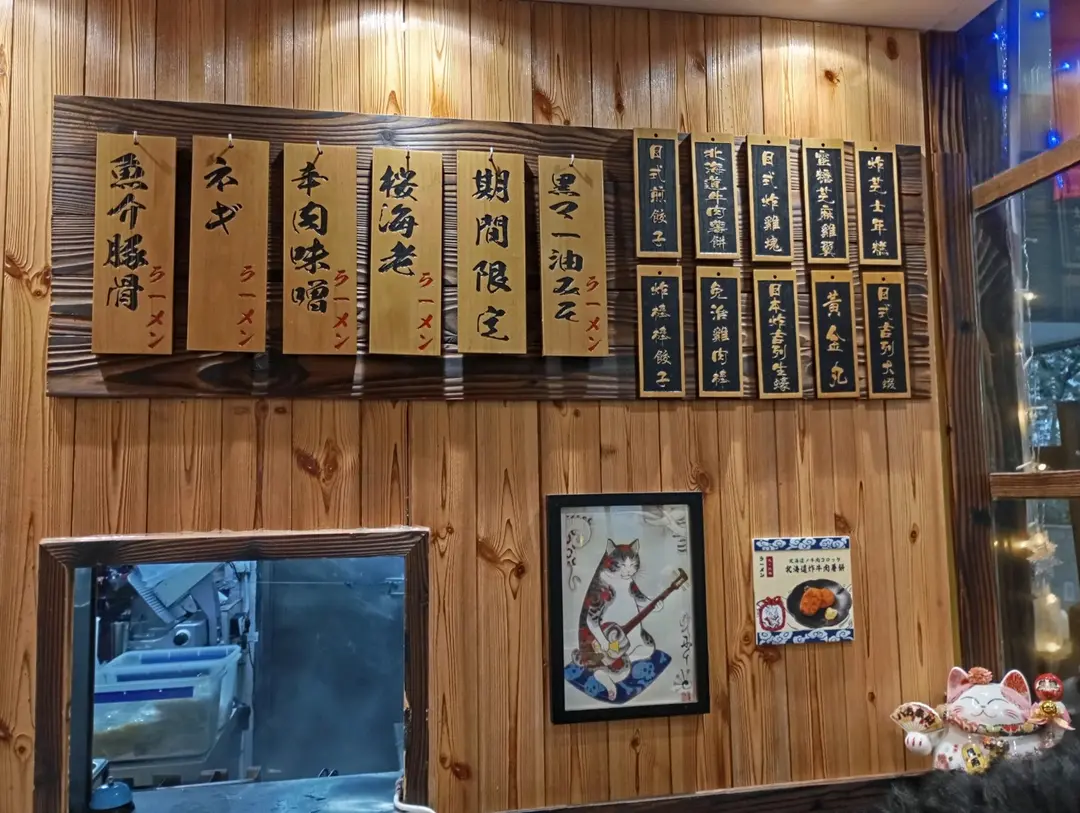 魚介豚骨
ラーメン
ネギ
ラーメン
辛肉味噌
ラーメン
桜海老
ラーメン
期間限定
黒マー油
ラーメン
日式煎餃子
北海道牛肉薯餅
日式炸雞塊
蜜糖芝麻雞翼
炸芝士年糕
炸棒棒餃子
免治雞肉棒
日本炸吉列生蠔
黃金丸
日式吉列大蝦
ラーメン
北海道ノ牛肉コロッケ
北海道炸牛肉薯餅